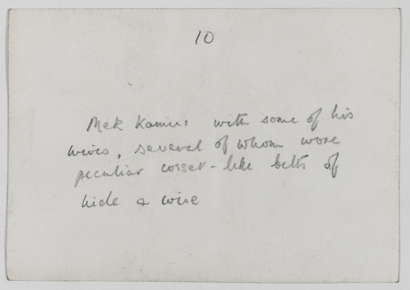 10
Mek Kamiui with some of his
wives, several of whom wore
peculiar corset-like belts of
hide & wire